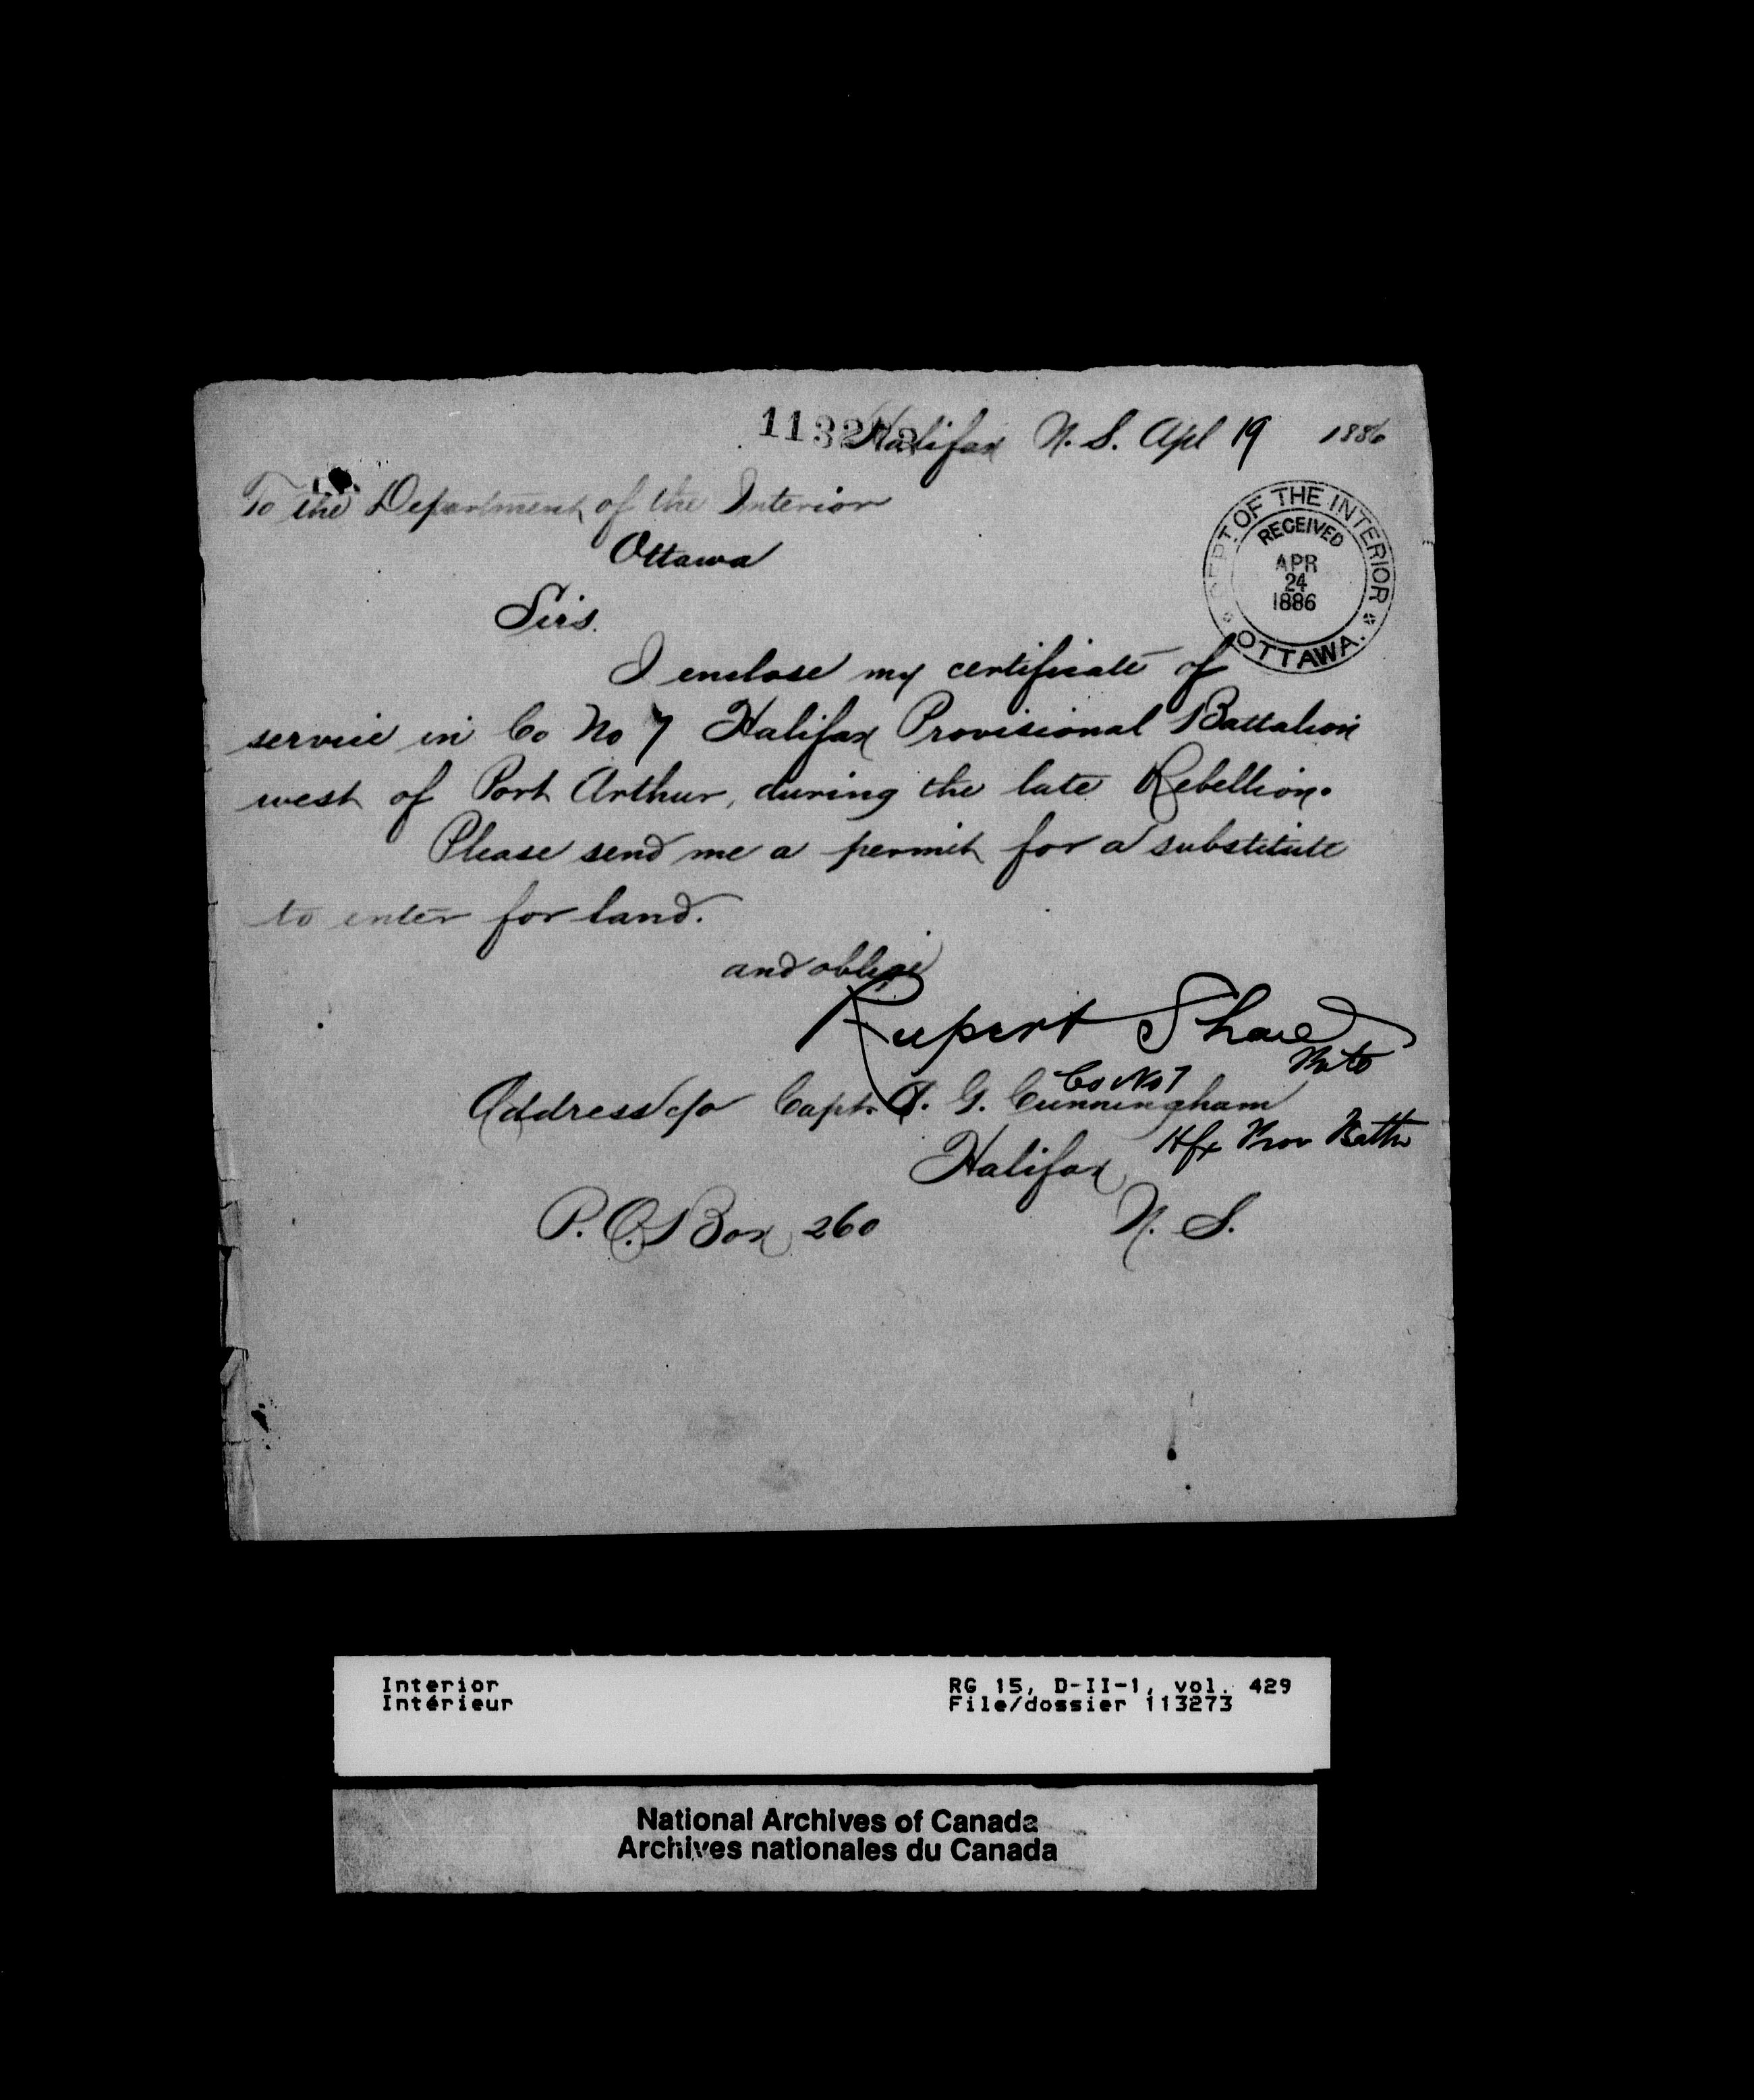 113273
Halifax N. S. Apl 19 1886
To the Department of the Interior
Ottawa
DEPT. OF THE INTERIOR
RECEIVED
APR
24
1886
OTTAWA.
Sirs.
I enclose my certificate of
service in Co No 7 Halifax Provisional Battalion
west of Port Arthur, during the late Rebellion.
Please send me a permit for a substitute
to enter for land.
and oblige
Rupert
Co No 7
Address c/o Capt. G. Cunningham
Hfx Prov Battn
Halifax
P. O. Box 260 N. S.
Interior
Intérieur
RG 15, D-II-1, vol. 429
File/dossier 113273
National Archives of Canada
Archives nationales du Canada